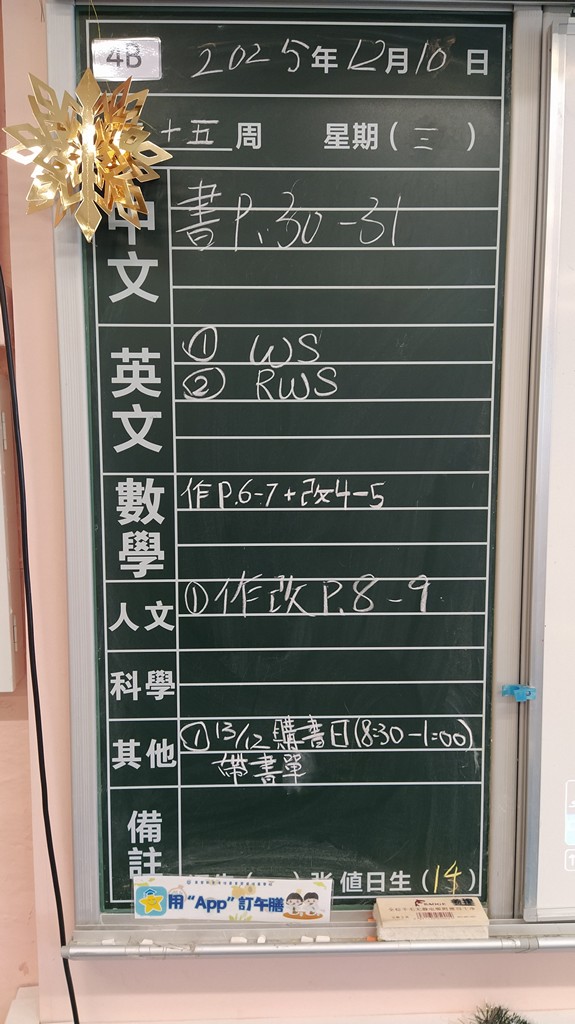 4B
2025年12月10日
十五周 星期(三)
中文
書P.30-31
英文
① WS
② RWS
數學
作P.6-7+改4-5
人文
①作改P.8-9
科學
其他
①13/12購書日(8:30-1:00)
帶書單
備註
張 值日生(14)
用“App”訂午膳